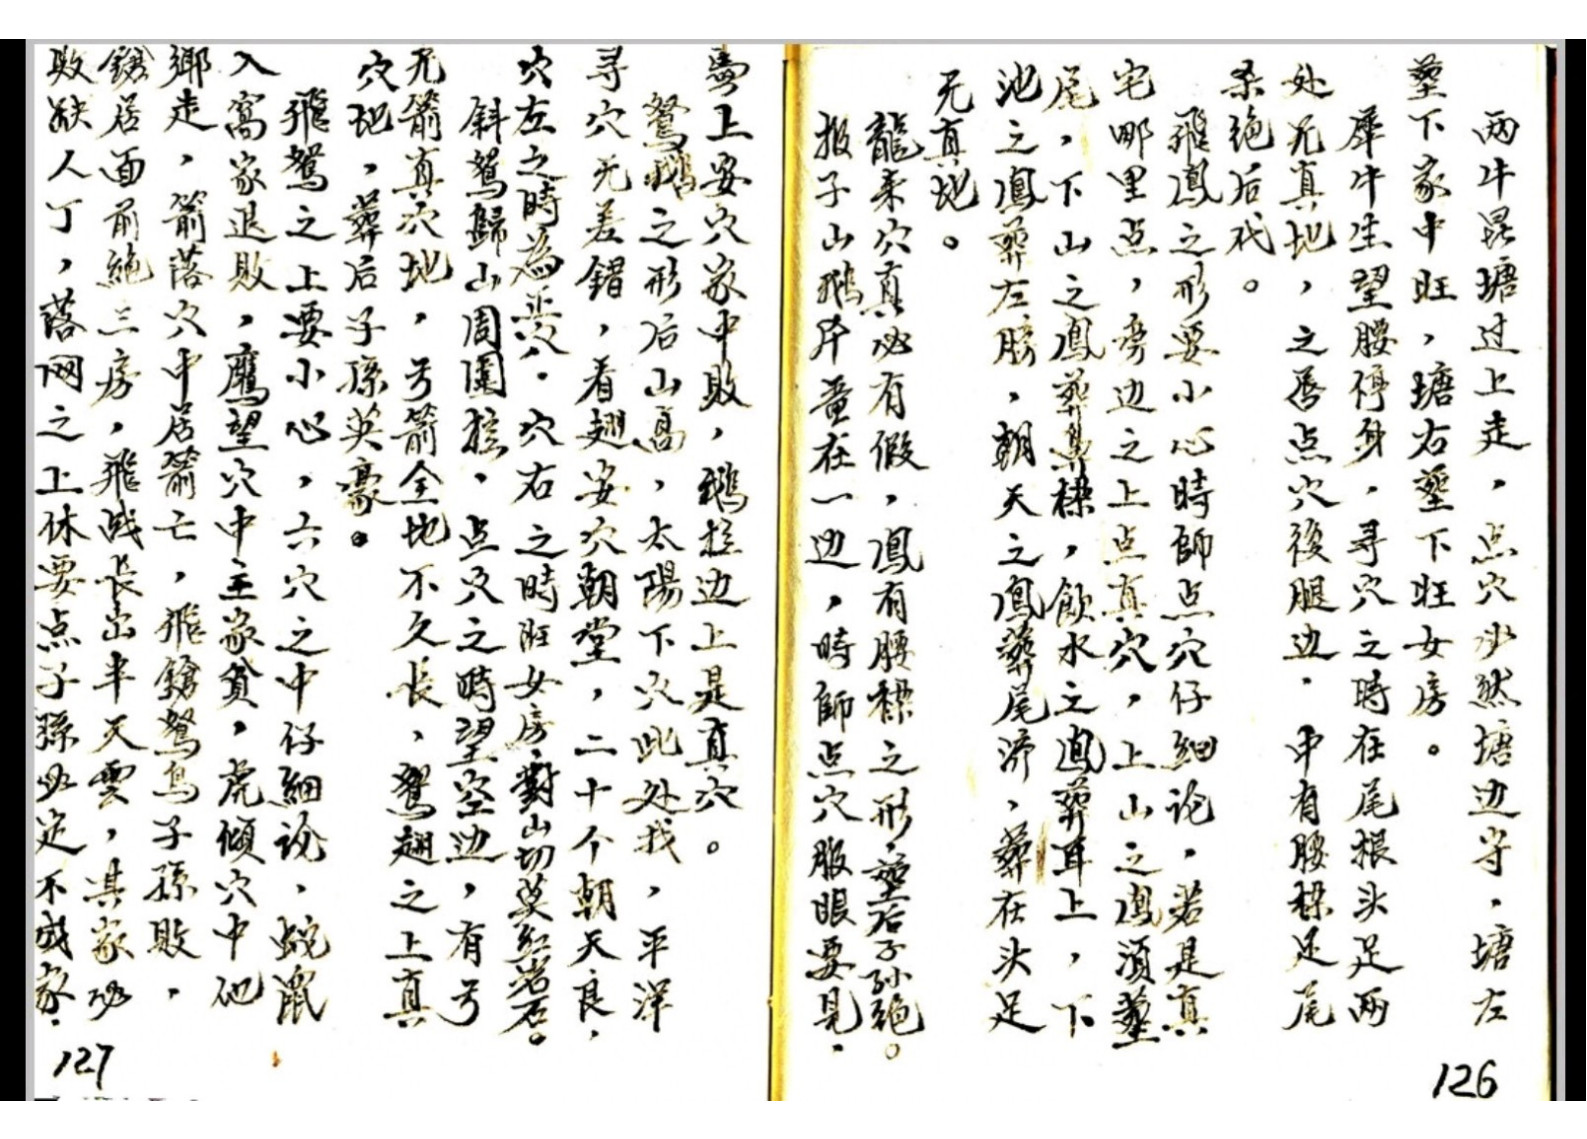 两牛昆塘过上走，点穴必然塘边守，塘左
塟下家中旺，塘右塟下旺女房。
犀牛生望腰停身，寻穴之時在尾根头足两
处无真地，之唇点穴後腿边，中有腰𣓁足尾
杀绝后代。
飛鳳之形要小心時師点穴仔細论，若是真
宅哪里点，旁边之上点真穴，上山之鳳須塟
尾，下山之鳳葬𣓁，飲水之鳳葬耳上，下
池之鳳葬左膀，朝天之鳳葬尾济，葬在头足
无真地。
龍来穴真必有假，鳳有腰𣓁之形，塟后子孙絕。
报子山鵝在一边，時師点穴服眼要見，
馬上安穴家中敗，鵝边上是真穴。
鴛鵝之形后山高，太陽下穴此处找，平洋
寻穴无差錯，看翅安穴朝堂，二十个朝天良，
穴左之時為，穴右之時旺女房，對山切莫紅岩石。
斜鴛歸山周圍，点穴之時望空边，有弓
无箭真穴地，弓箭全地不久长，鴛翅之上真
穴地，葬后子孫英豪。
飛鴛之上要小心，六穴之中仔細论，蛇鼠
入窝家退敗，鷹望穴中主家貧，虎傾穴中他
鄉走，箭落穴中居箭亡，飛鎗鴛鸟子孫敗，
鎊居面前絕三房，飛戏长出半天雲，其家必
敗缺人丁，落网之上休要点子孫必定不成家，
127
126